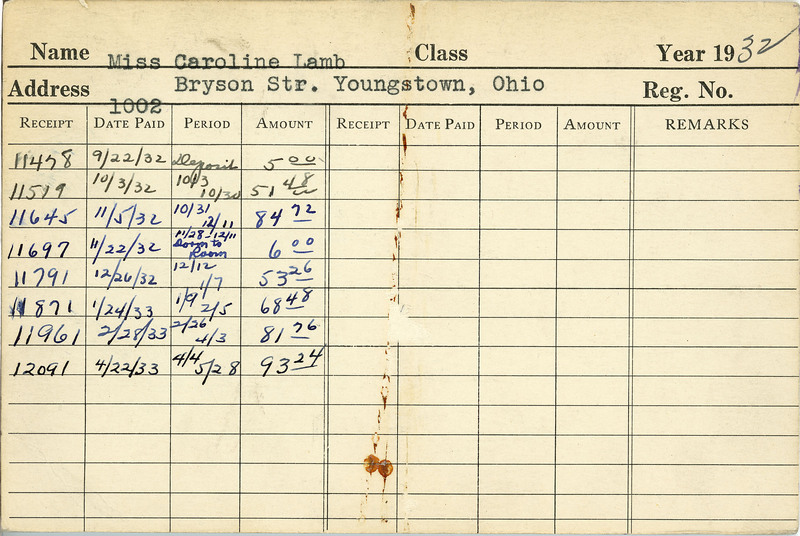 Name Miss Caroline Lamb Class Year 1932
Address Bryson Str. Youngstown, Ohio Reg. No.
1002
RECEIPT DATE PAID PERIOD AMOUNT RECEIPT DATE PAID PERIOD AMOUNT REMARKS
11478 9/22/32 Deposit 5 00
11519 10/3/32 10/3 10/30 51 48
11645 11/5/32 10/31 12/11 84 72
11697 11/22/32 11/28-12/11 Dorm to Room 6 00
11791 12/26/32 12/12 1/7 53 26
11871 1/24/33 1/9 2/5 68 48
11961 2/28/33 2/26 4/3 81 76
12091 4/22/33 4/4 5/28 93 24